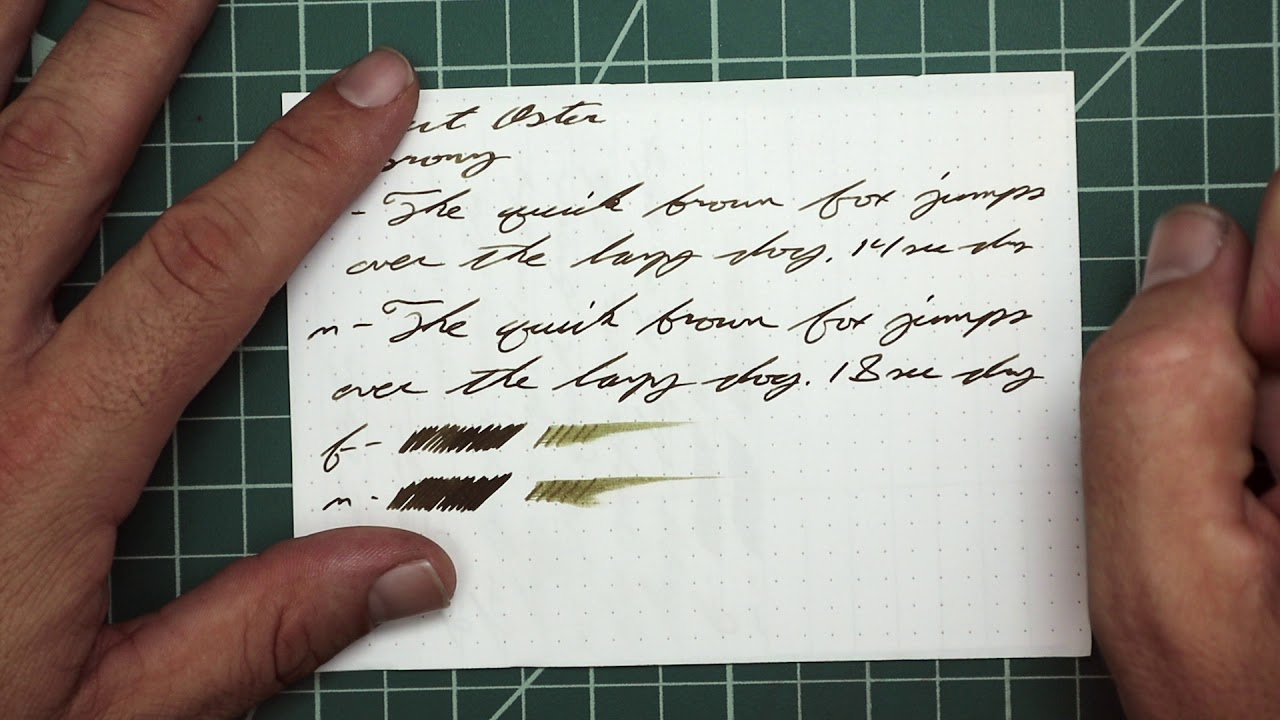 ert Oster
- The quick brown fox jumps
over the lazy dog. 14 sec dry
m - The quick brown fox jumps
over the lazy dog. 18 sec dry
f -
m -